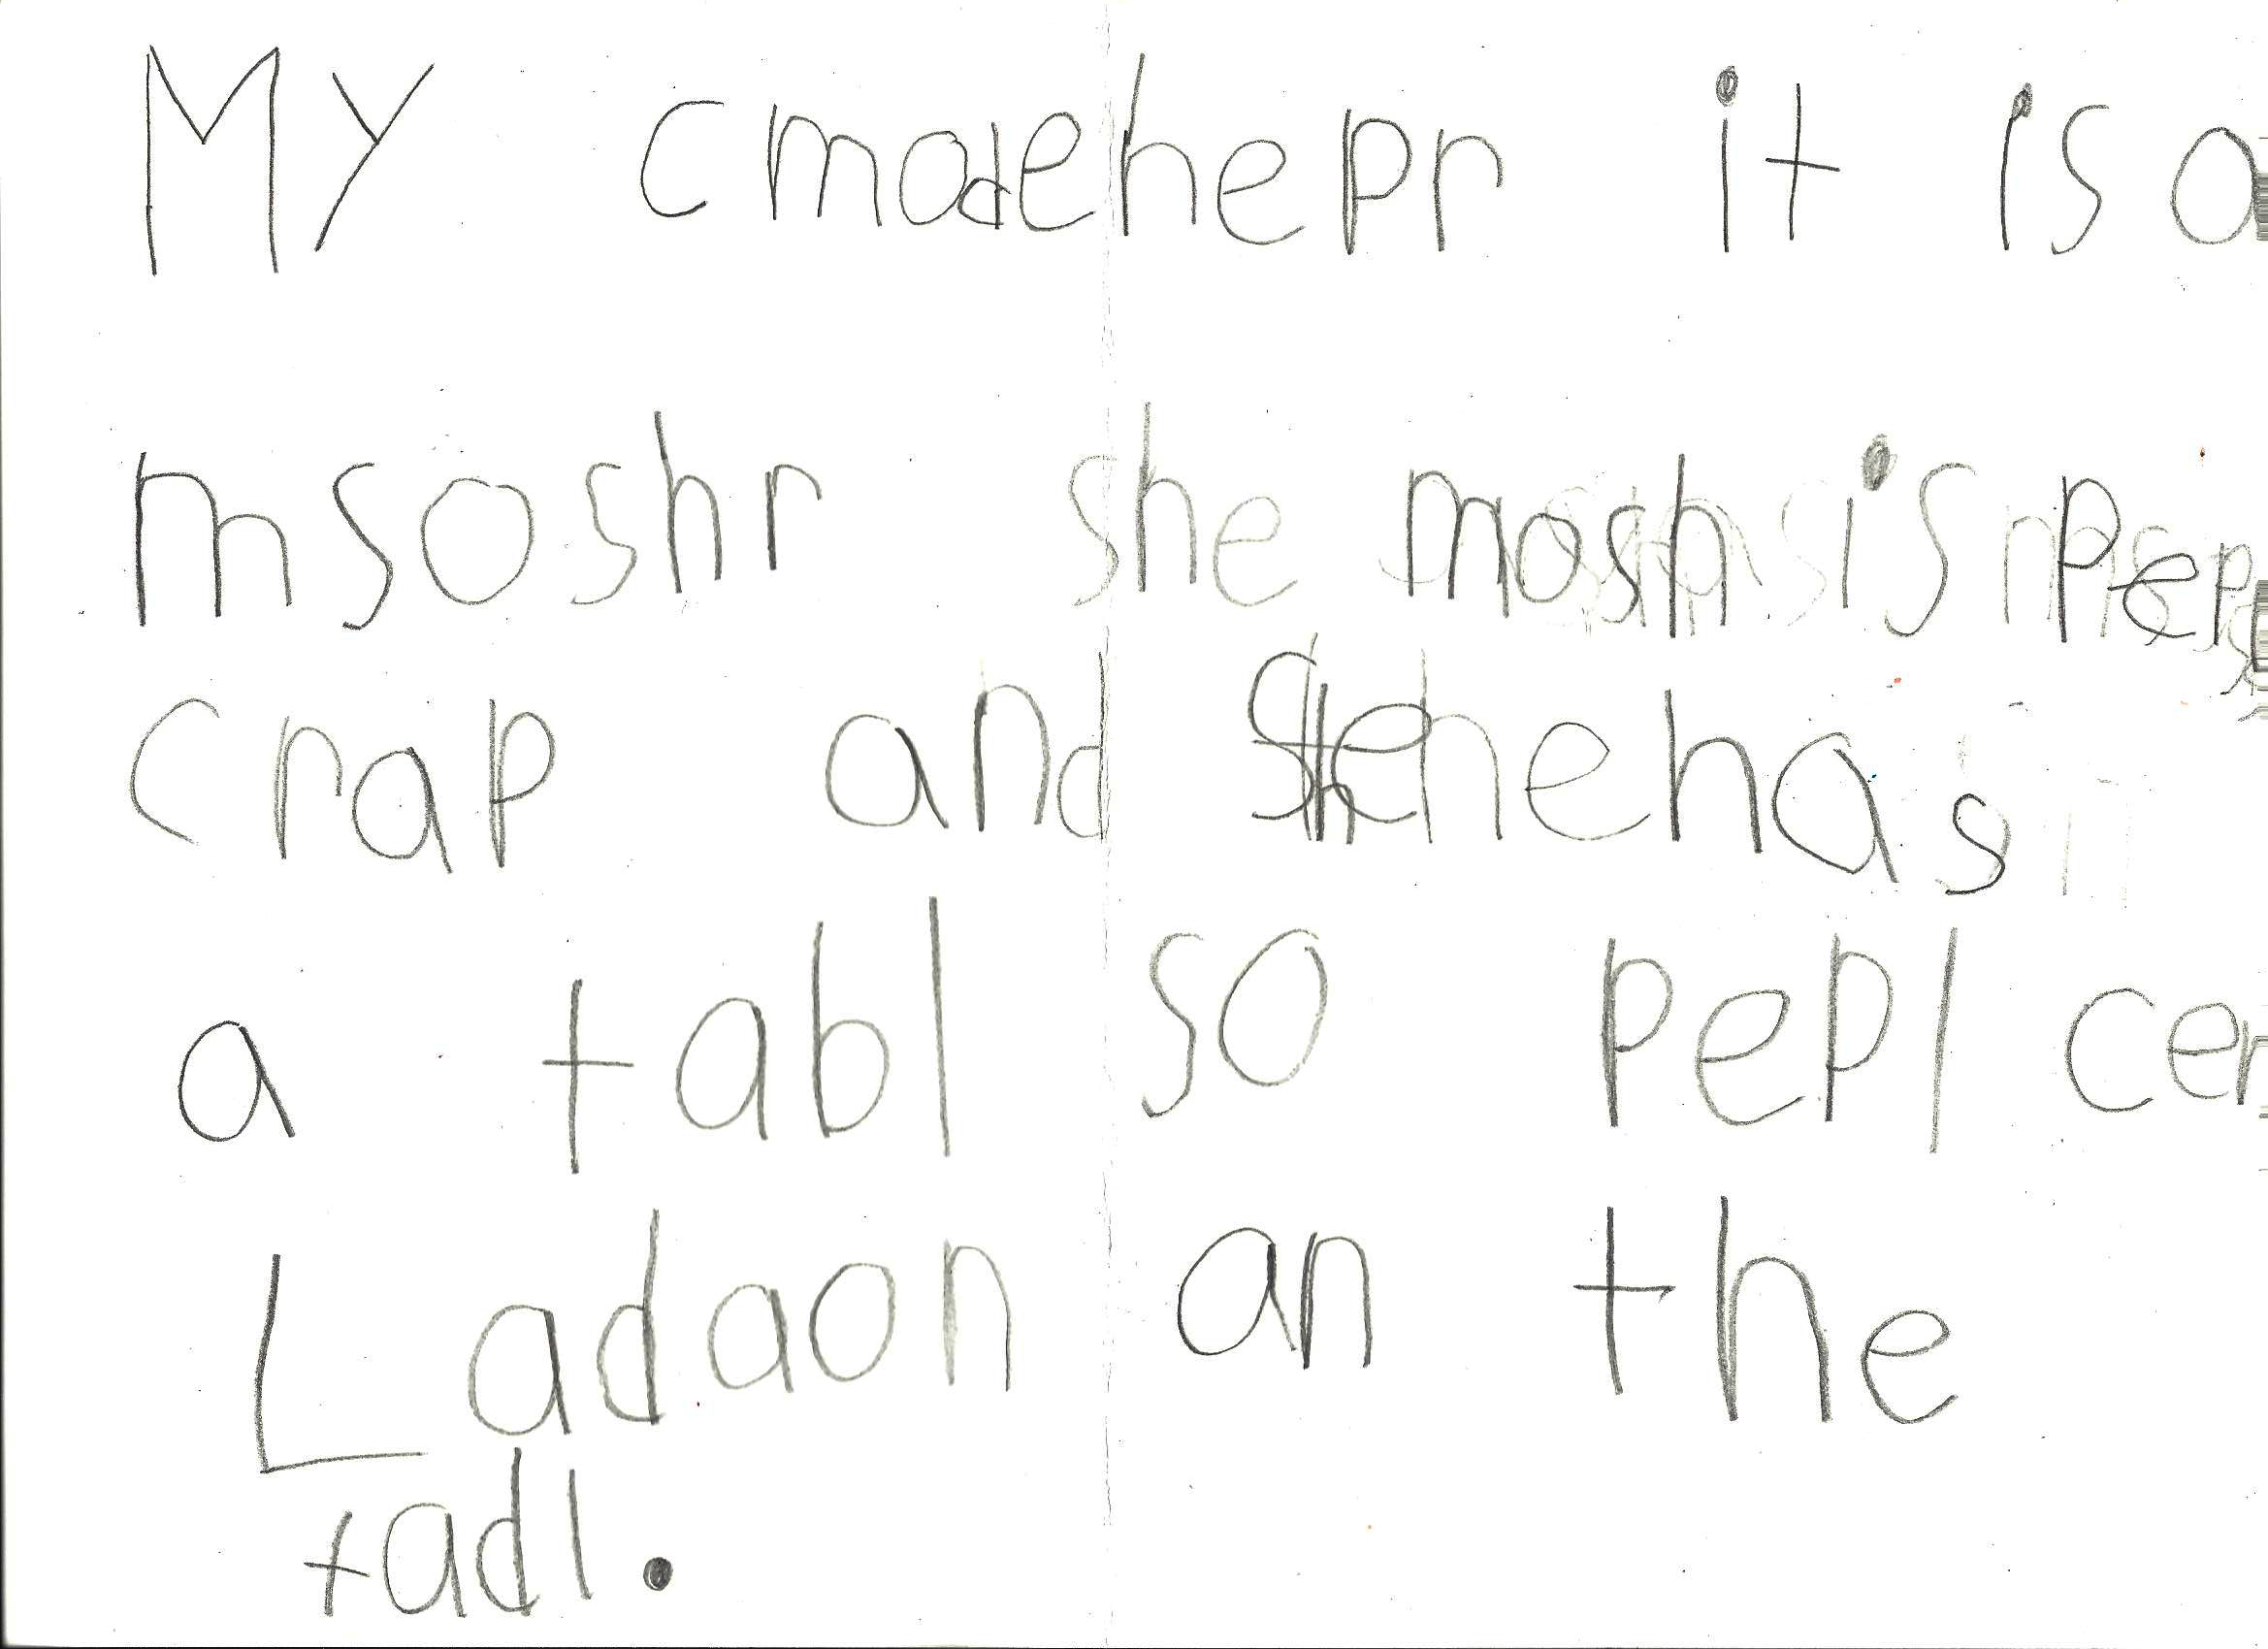 MY cmaehepr it is a
msoshr she mosh is
crap and she has
a tabl so pepl cen
Ladaon an the
tadl.